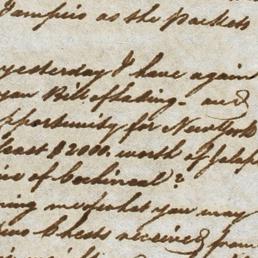 Tampico as the Packets
yesterday I have again
your Bill of lading - and
opportunity for New York
least $2000. worth of Jalap
of cochineal?
me what you may
Chests received from